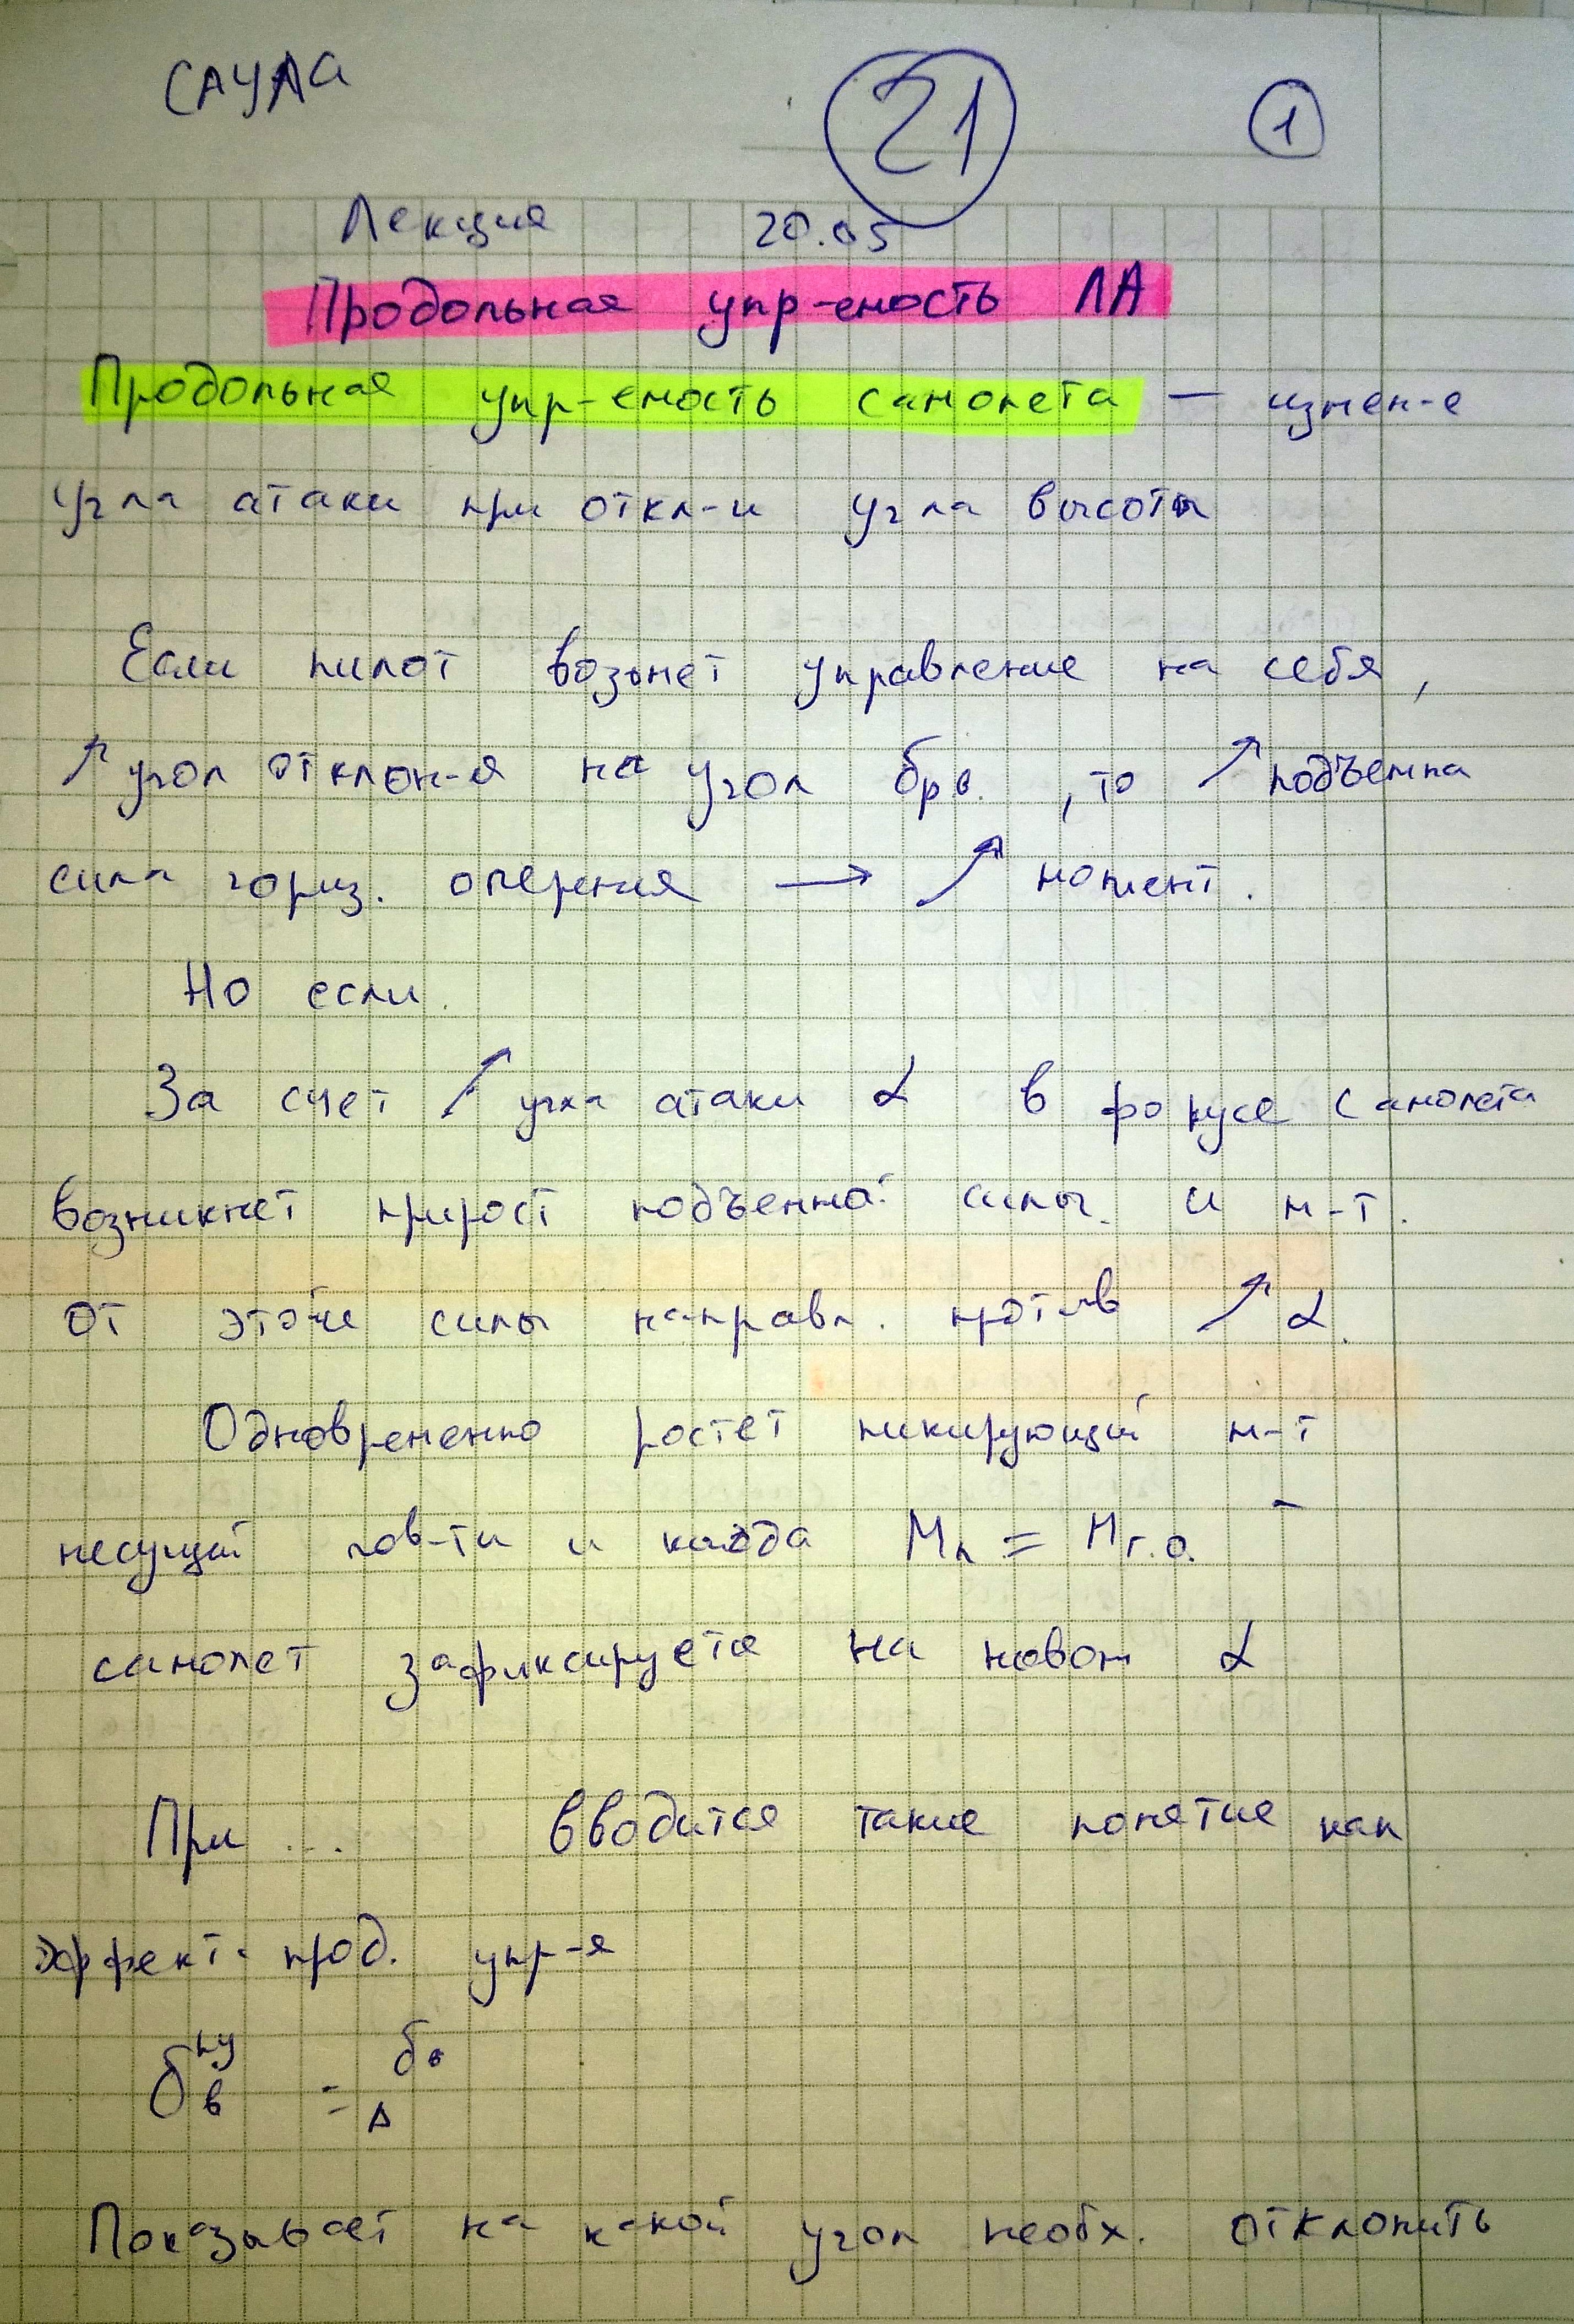 САУЛА 21 1
Лекция 20.05
Продольная упр-емость ЛА
Продольная упр-емость самолета — измен-е
угла атаки при откл-и угла высоты
Если пилот возьмет управление на себя,
↗ угол отклон-я на угол δрв. , то ↗ подъемна
сила гориз. оперения → ↗ момент.
Но если.
За счет ↗ угла атаки α в фокусе самолета
возникнет прирост подъемной силы и м-т.
от этой силы направл. против ↗ α.
Одновременно ростет пикирующий м-т
несущей пов-ти и когда Мп = Мг.о.
самолет зафиксируется на новом α
При ... вводится такие понятие как
эффект. прод. упр-я
δв^пу = δв Δ
Показывает на какой угол необх. отклонить